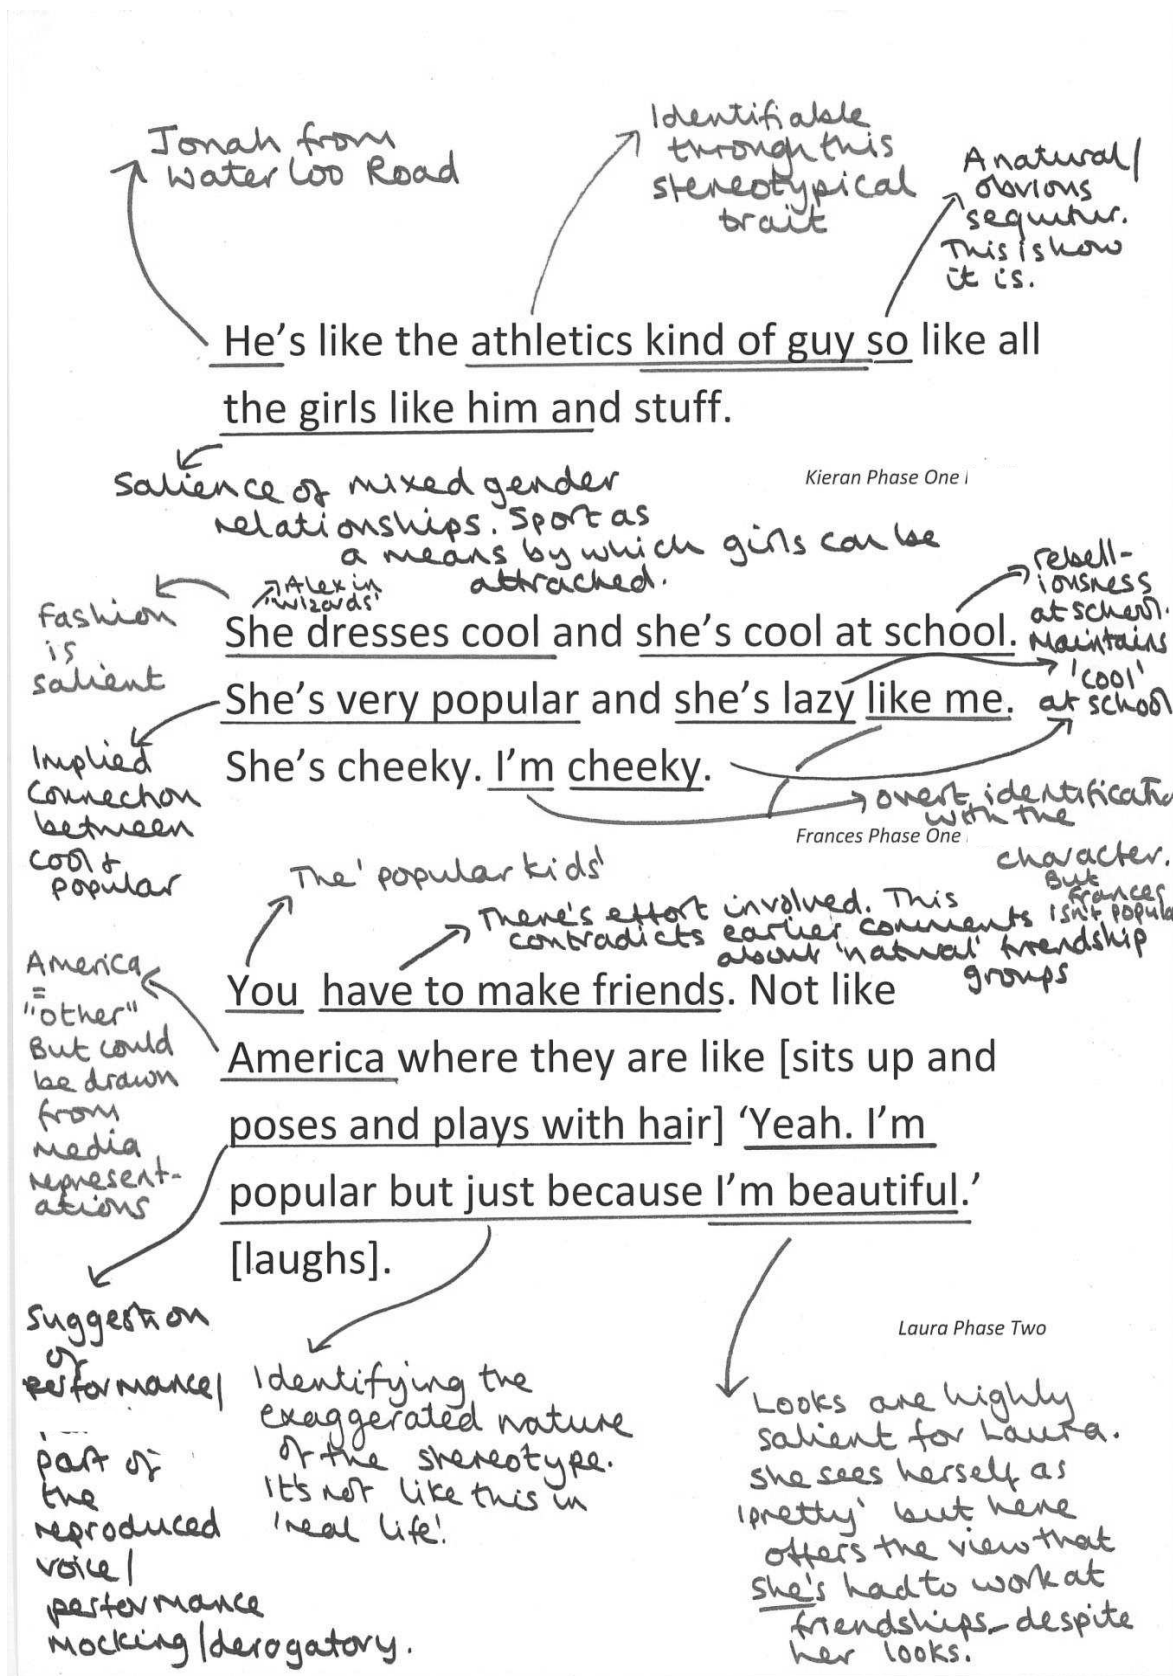 Jonah from
Waterloo Road
Identifiable
through this
stereotypical
trait
A natural/
obvious
sequitur.
This is how
it is.
He's like the athletics kind of guy so like all
the girls like him and stuff.
Kieran Phase One
Salience of mixed gender
relationships. Sport as
a means by which girls can be
attracted.
Alex in
'Wizards'
Fashion
is
salient
rebell-
iousness
at school.
Maintains
'cool'
at school
She dresses cool and she's cool at school.
She's very popular and she's lazy like me.
She's cheeky. I'm cheeky.
Implied
connection
between
cool +
popular
overt identificatio
with the
character.
But
Frances
isn't popula
Frances Phase One
The 'popular kids'
There's effort involved. This
contradicts earlier comments
about 'natural' friendship
groups
America
=
"other"
But could
be drawn
from
media
represent-
ations
You have to make friends. Not like
America where they are like [sits up and
poses and plays with hair] ‘Yeah. I'm
popular but just because I'm beautiful.’
[laughs].
Laura Phase Two
Suggestion
of
performance/
part of
the
reproduced
voice/
performance
Mocking/derogatory.
Identifying the
exaggerated nature
of the stereotype.
It's not like this in
'real life'.
Looks are highly
salient for Laura.
She sees herself as
'pretty' but here
offers the view that
she's had to work at
friendships_ despite
her looks.